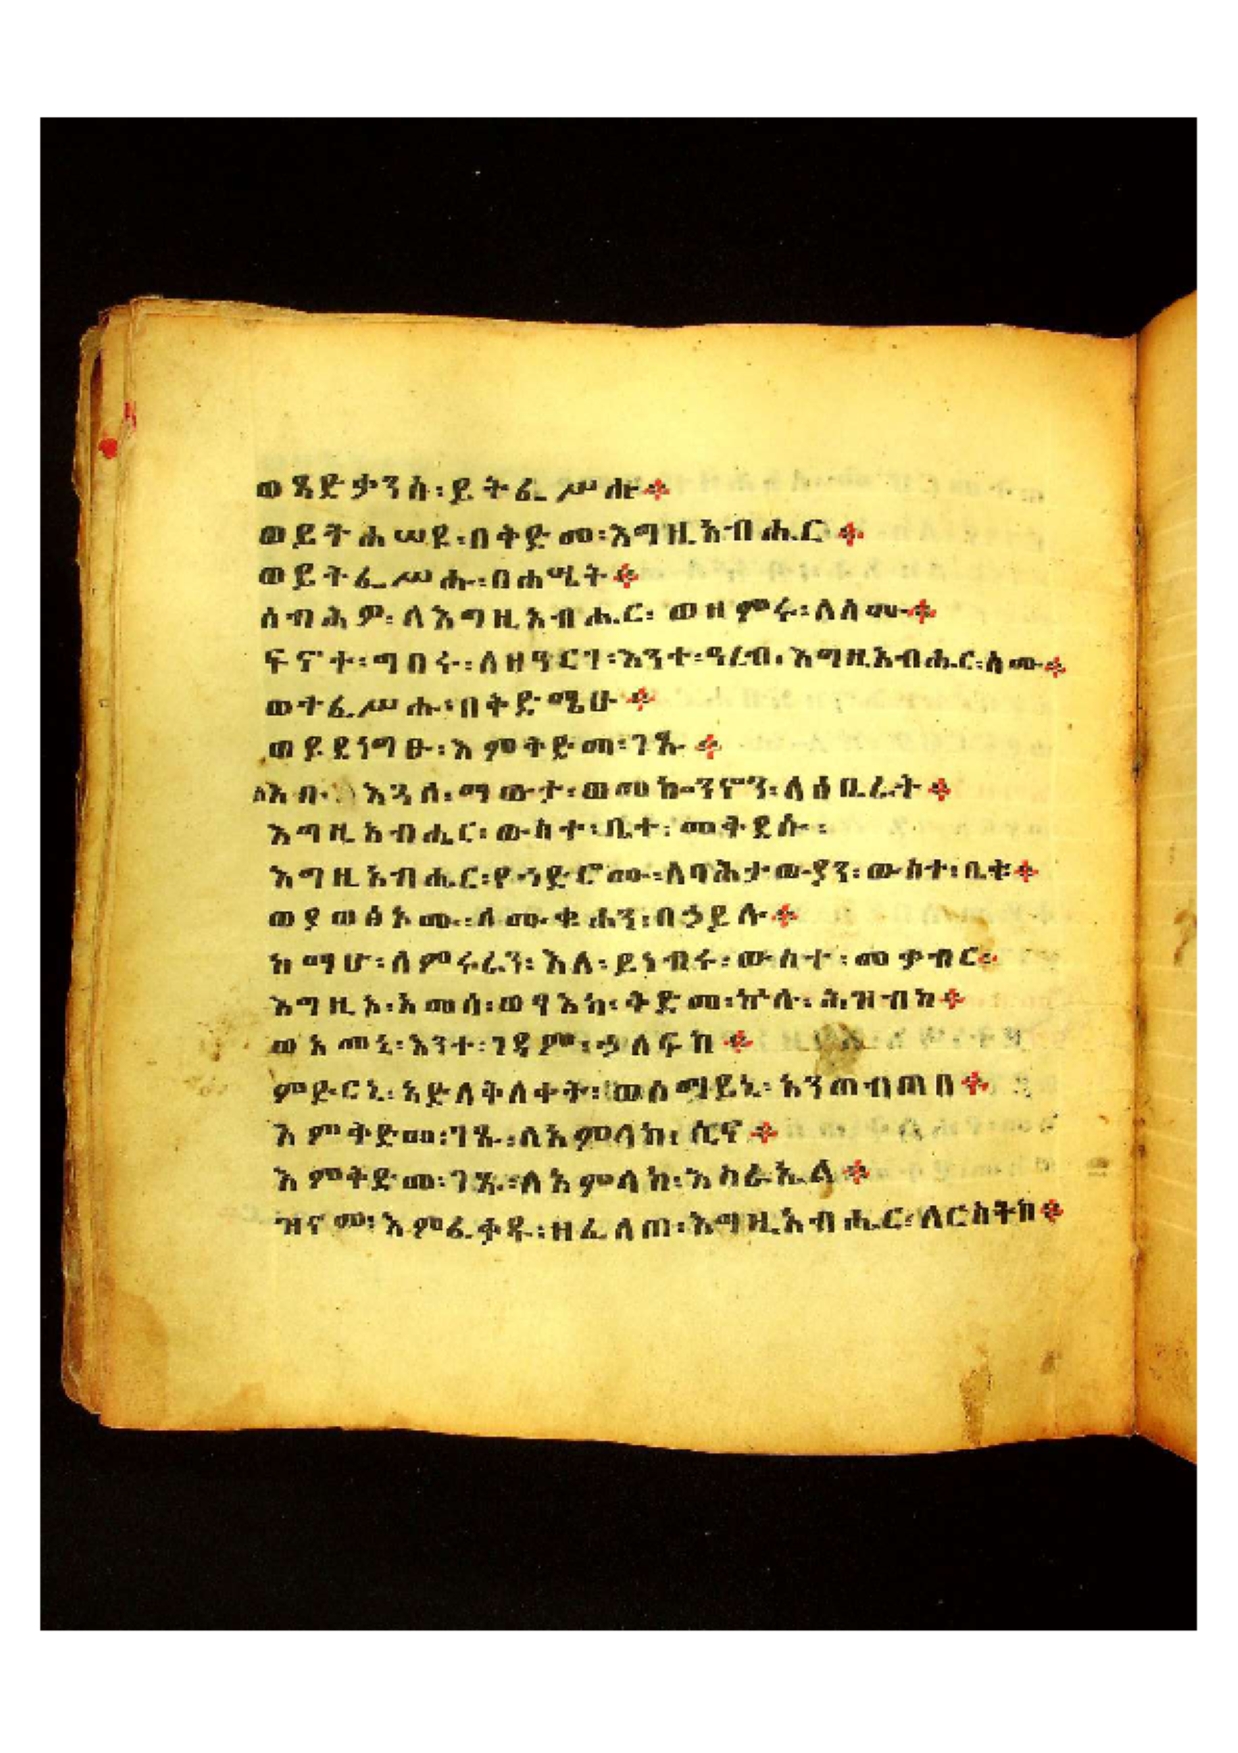 ወጻድቃንሰ፡ይትፌሥሑ፨
ወይትሐሠዩ፡በቅድመ፡እግዚአብሔር፨
ወይትፌሥሑ፡በሐሤት፨
ሰብሕዎ፡ለእግዚአብሔር፡ወዘምሩ፡ለስሙ፨
ፍኖተ፡ግበሩ፡ለዘዓርገ፡እንተ፡ዓረብ፡እግዚአብሔር፡ስሙ፨
ወተፈሥሑ፡በቅድሜሁ፨
ወይደነግፁ፡እምቅድመ፡ገጹ፨
አቡ፡እጓለ፡ማውታ፡ወመኰንኖን፡ለዕቤራት፨
እግዚአብሔር፡ውስተ፡ቤተ፡መቅደሱ፡
እግዚአብሔር፡የኀድሮሙ፡ለባሕታውያን፡ውስተ፡ቤቱ፨
ወያወፅኦሙ፡ለሙቁሐን፡በኃይሉ፨
ከማሁ፡ለምሩራን፡እለ፡ይነብሩ፡ውስተ፡መቃብር፨
እግዚኦ፡አመሰ፡ወፃእከ፡ቅድመ፡ኵሉ፡ሕዝብከ፨
ወአመኒ፡እንተ፡ገዳም፡ኃለፍከ፨
ምድርኒ፡አድለቅለቀት፡ወሰማይኒ፡አንጠብጠበ፨
እምቅድመ፡ገጹ፡ለአምላከ፡ሲና፨
እምቅድመ፡ገጹ፡ለአምላከ፡እስራኤል፨
ዝናመ፡እምፈቃዱ፡ዘፈለጠ፡እግዚአብሔር፡ለርስትከ፨